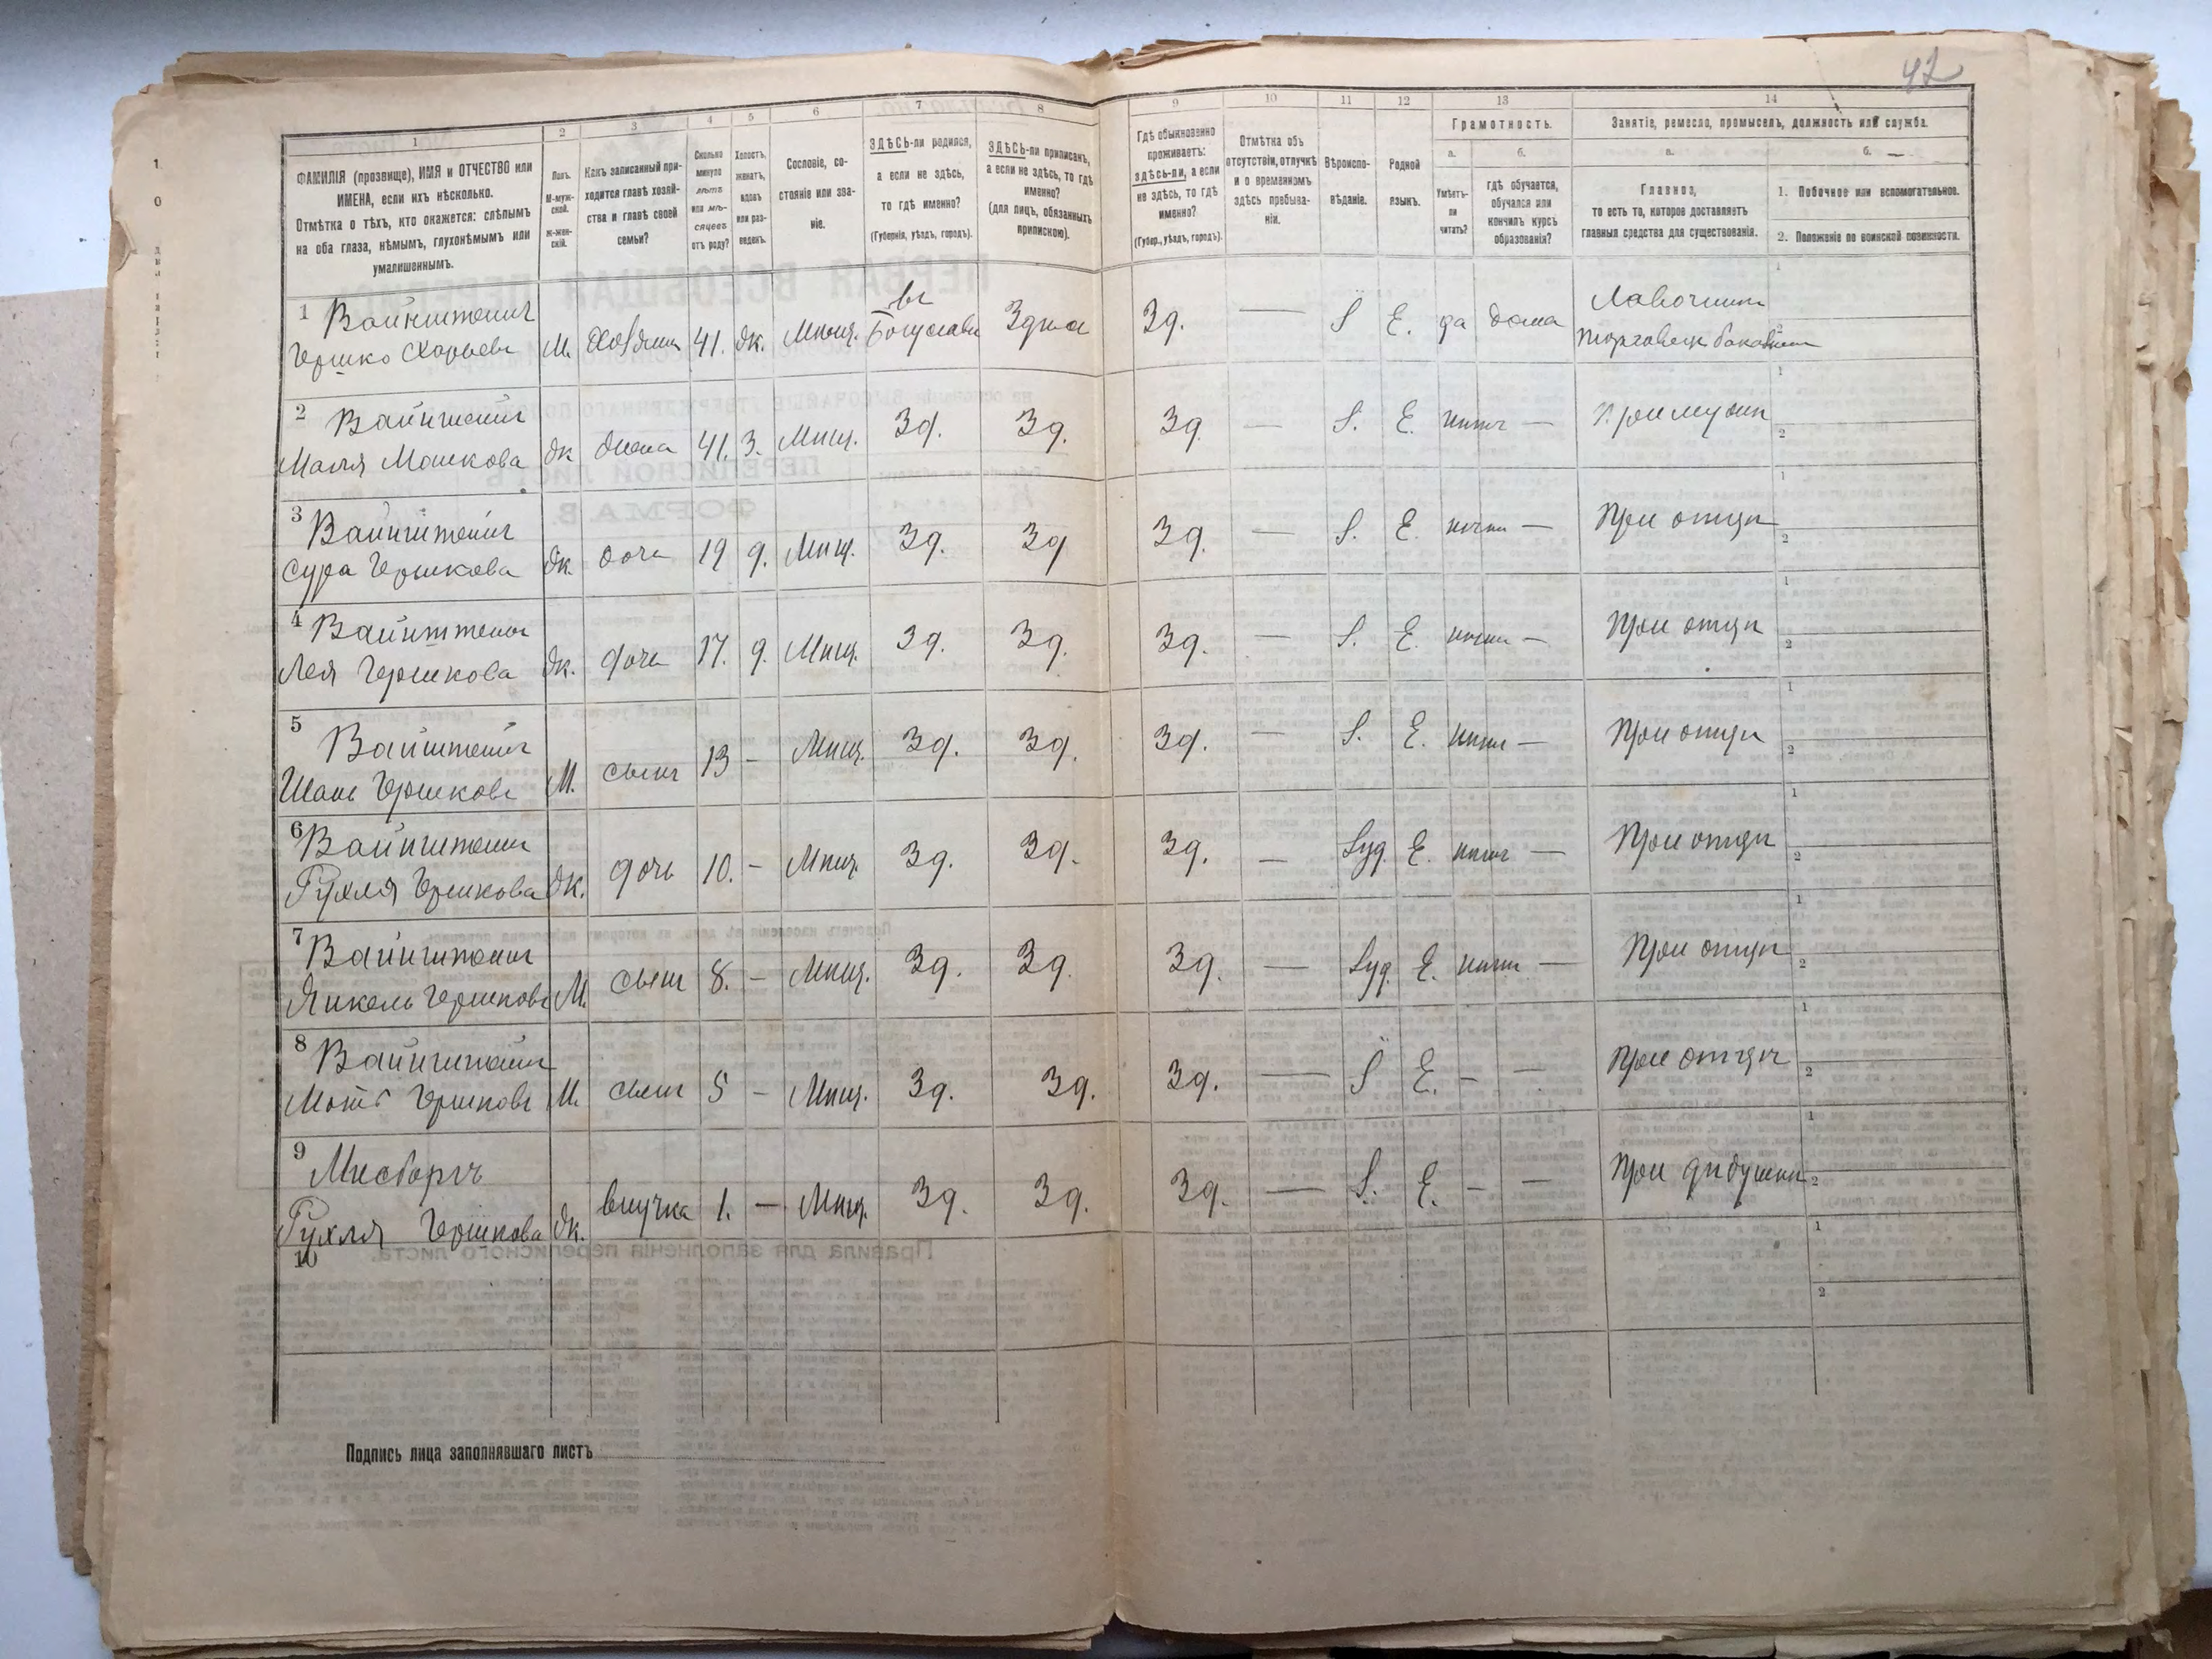 42
1 2 3 4 5 6 7 8 9 10 11 12 13 14
ФАМИЛІЯ (прозвище), ИМЯ и ОТЧЕСТВО или
ИМЕНА, если ихъ нѣсколько.
Отмѣтка о тѣхъ, кто окажется: слѣпымъ
на оба глаза, нѣмымъ, глухонѣмымъ или
умалишеннымъ.
Полъ.
М-муж-
ской.
Ж-жен-
скій.
Какъ записанный при-
ходится главѣ хозяй-
ства и главѣ своей
семьи?
Сколько
минуло
лѣтъ
или мѣ-
сяцевъ
отъ роду?
Холостъ,
женатъ,
вдовъ
или раз-
веденъ.
Сословіе, со-
стояніе или зва-
ніе.
ЗДѢСЬ-ли родился,
а если не здѣсь,
то гдѣ именно?
(Губернія, уѣздъ, городъ).
ЗДѢСЬ-ли приписанъ,
а если не здѣсь, то гдѣ
именно?
(для лицъ, обязанныхъ
припискою).
Гдѣ обыкновенно
проживаетъ:
здѣсь-ли, а если
не здѣсь, то гдѣ
именно?
(Губер., уѣздъ, городъ).
Отмѣтка объ
отсутствіи, отлучкѣ
и о временномъ
здѣсь пребыва-
ніи.
Вѣроиспо-
вѣданіе.
Родной
языкъ.
Грамотность.
а. б.
Умѣетъ-
ли
читать?
гдѣ обучается,
обучался или
кончилъ курсъ
образованія?
Занятіе, ремесло, промыселъ, должность или служба.
а. б.
Главное,
то есть то, которое доставляетъ
главныя средства для существованія.
1. Побочное или вспомогательное.
2. Положеніе по воинской повинности.
1 Вайнштейнъ
Гершко М. 41. ж. Мѣщ. въ Богуславѣ Здѣсь Зд. — Е. да дома Лавочникъ
2 Вайнштейнъ
Малля Мошкова ж жена 41. З. Мѣщ. Зд. Зд. Зд — Е. нѣтъ — При мужѣ
3 Вайнштейнъ
Сура Гершкова ж. дочь 19 д. Мѣщ. Зд. Зд Зд. — Е. нѣтъ — При отцѣ
4 Вайнштейнъ
Лея Гершкова ж. дочь 17. д. Мѣщ. Зд. Зд. Зд. — Е. нѣтъ — При отцѣ
5 Вайнштейнъ
Гершковъ М. сынъ 13 — Мѣщ. Зд. Зд. Зд. — Е. нѣтъ — При отцѣ
6 Вайнштейнъ
Рухля Гершкова ж. дочь 10. — Мѣщ. Зд. Зд. Зд. — Іуд. Е. нѣтъ — При отцѣ
7 Вайнштейнъ
Янкель Гершковъ М. сынъ 8. — Мѣщ. Зд. Зд. Зд. — Іуд. Е. нѣтъ — При отцѣ
8 Вайнштейнъ
Гершковъ М. сынъ 5 — Мѣщ. Зд. Зд. Зд. — Е. — — При отцѣ
9
Рухля Гершкова ж. внучка 1. — Мѣщ. Зд. Зд. Зд. — Е. — — При дѣдушкѣ
10
Подпись лица заполнявшаго листъ